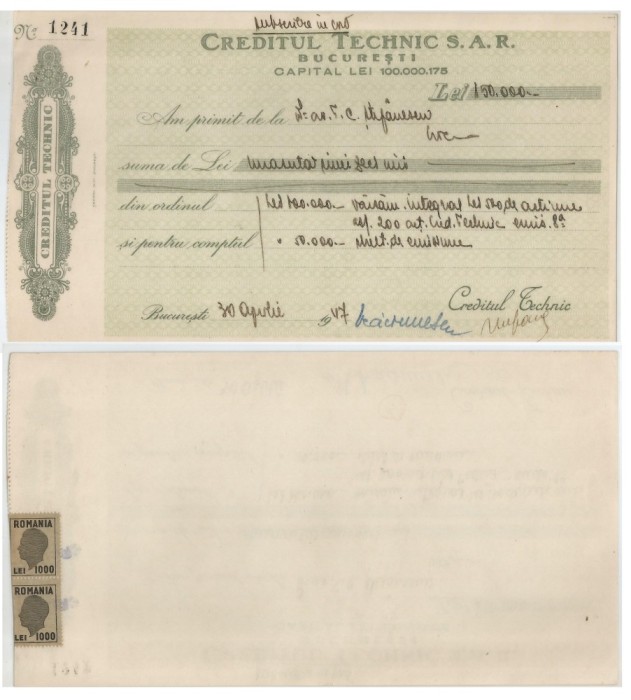 subscriere în cont
No 1241
CREDITUL TECHNIC S.A.R.
BUCUREŞTI
CAPITAL LEI 100.000.175
CREDITUL TECHNIC
Lei 150.000.-
Am primit de la C. Ştefănescu
suma de Lei mii
din ordinul Lei 100.000.- integral Lei 500 de acţiune
200 acţ. Cred. Technic emis. 8a
şi pentru comptul " 50.000.- de emisiune
Bucureşti 30 Aprilie 947
Creditul Technic
ROMANIA
LEI 1000
ROMANIA
LEI 1000